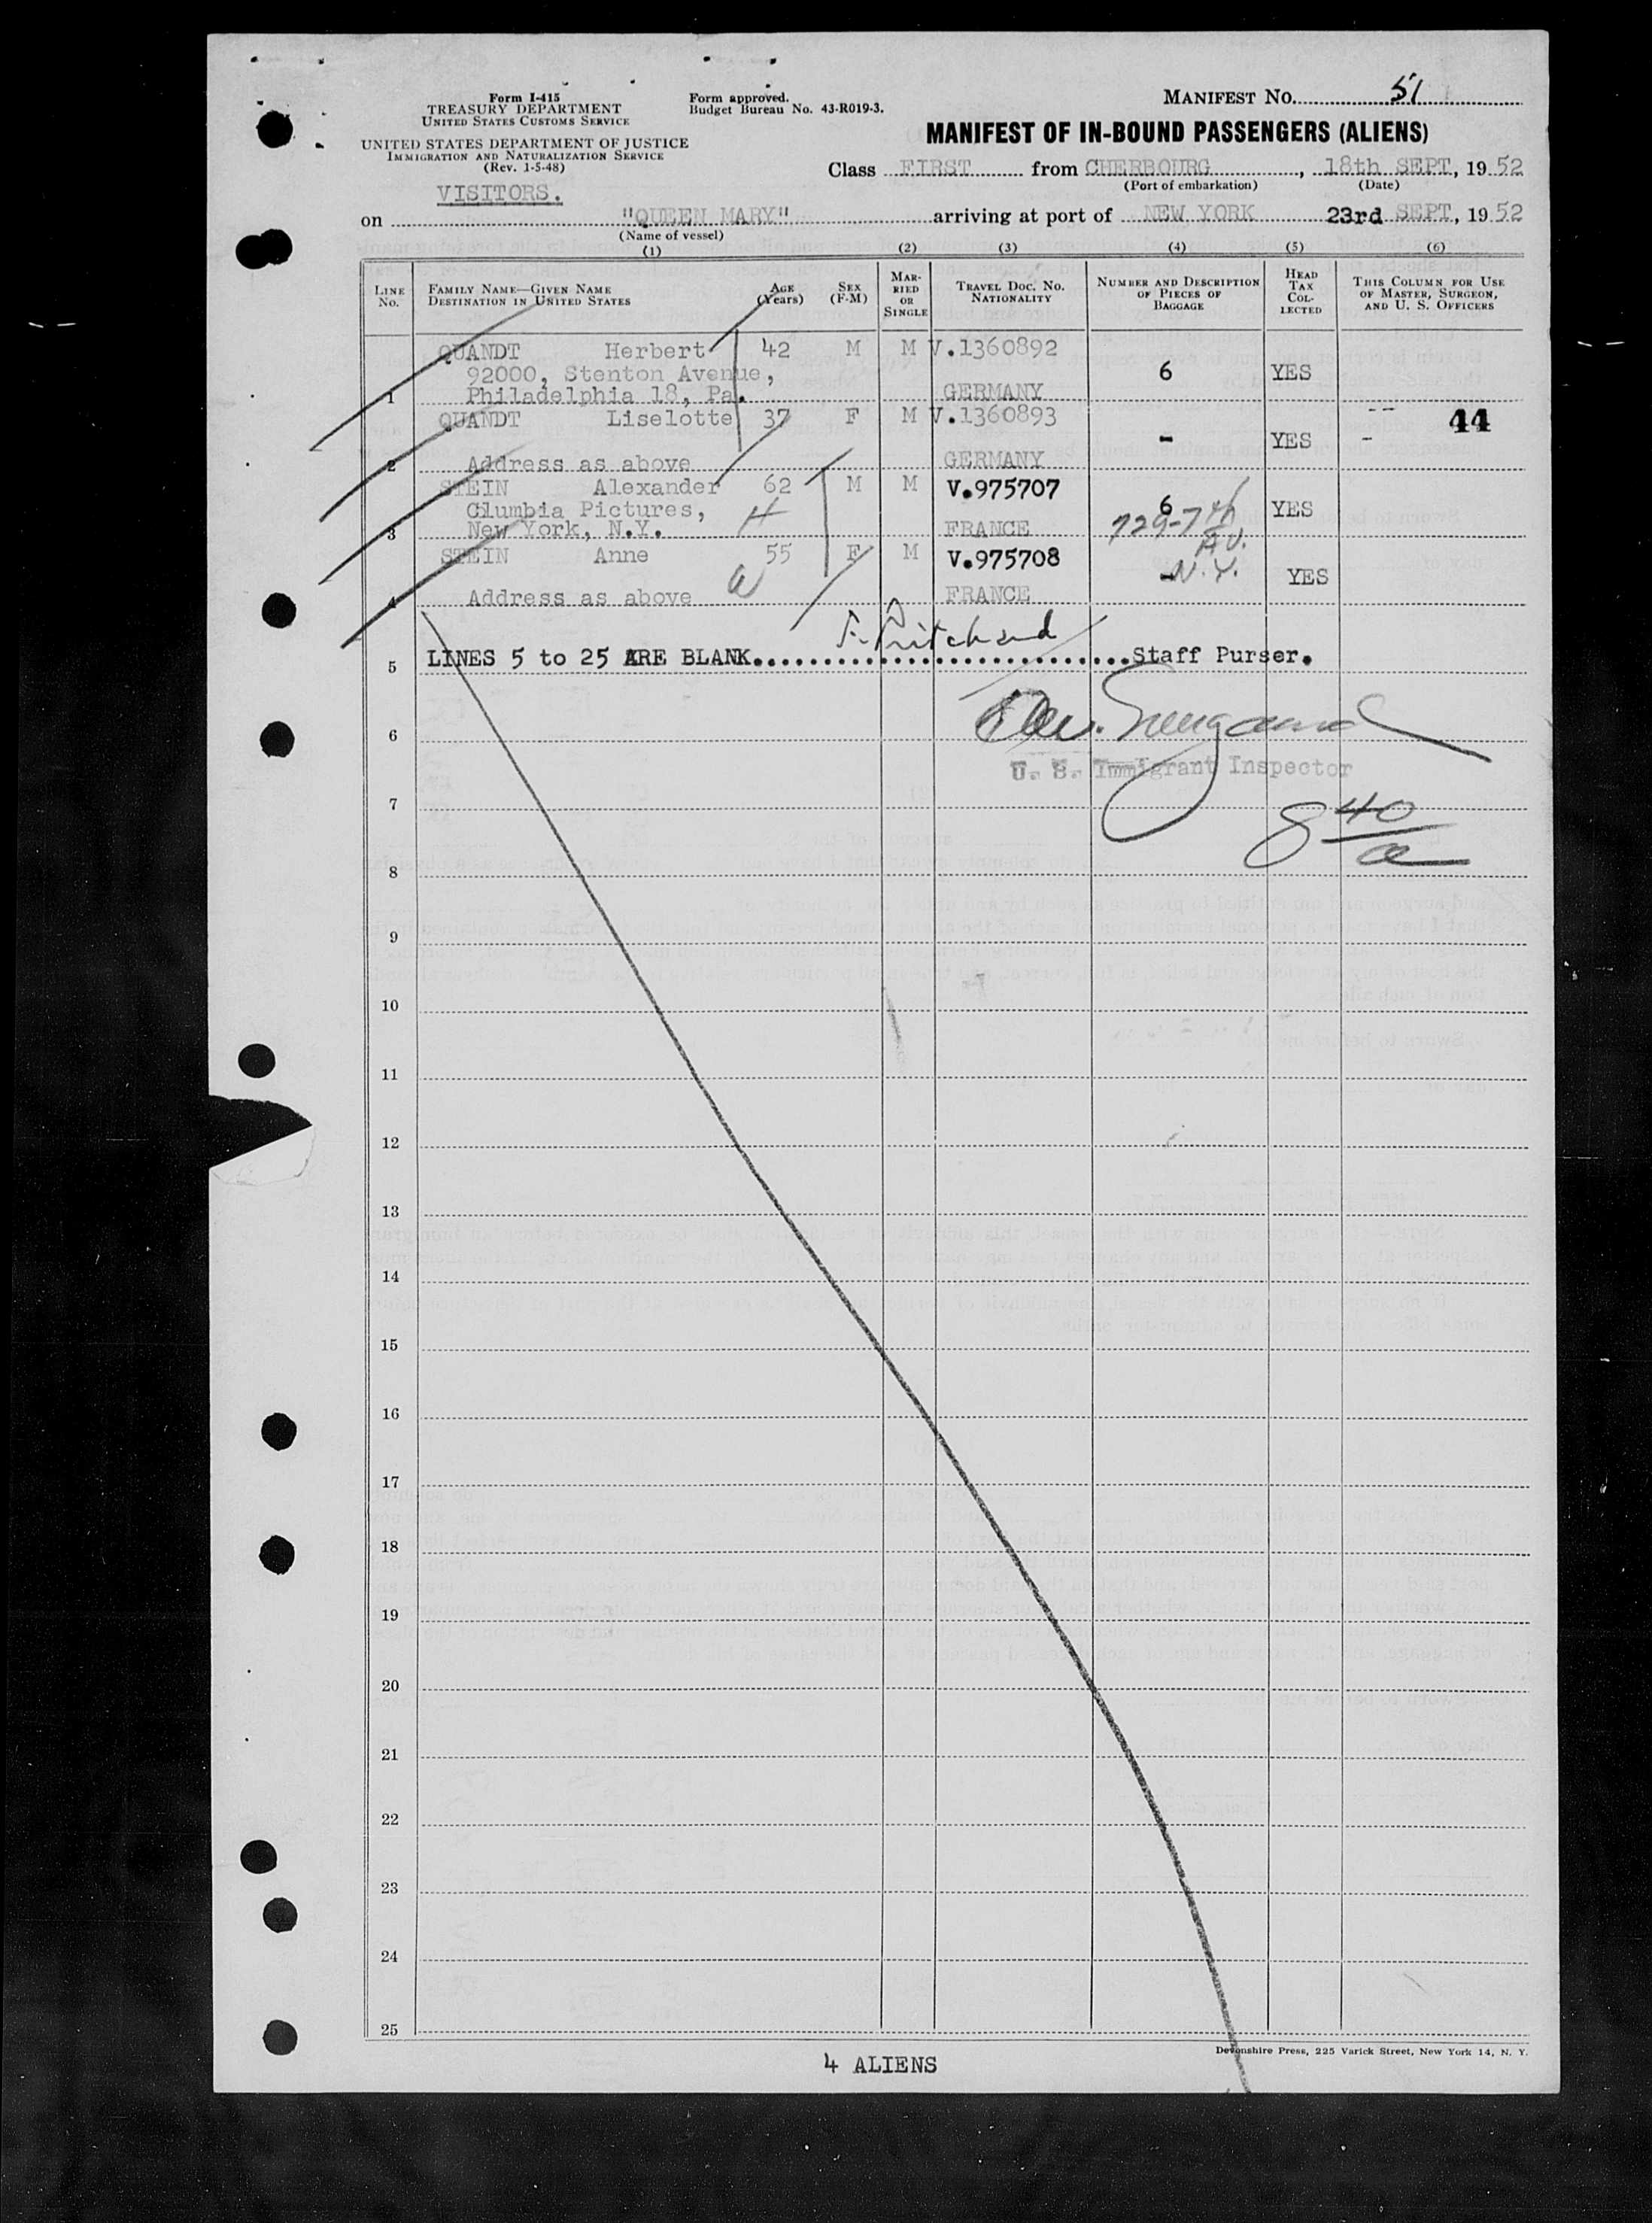 Form I-415
TREASURY DEPARTMENT
UNITED STATES CUSTOMS SERVICE
UNITED STATES DEPARTMENT OF JUSTICE
IMMIGRATION AND NATURALIZATION SERVICE
(Rev. 1-5-48)
VISITORS.
Form approved.
Budget Bureau No. 43-R019-3.
MANIFEST NO. 51
MANIFEST OF IN-BOUND PASSENGERS (ALIENS)
Class FIRST from CHERBOURG, 18th SEPT, 1952
(Port of embarkation) (Date)
on "QUEEN MARY" arriving at port of NEW YORK 23rd SEPT, 1952
(Name of vessel)
(1) (2) (3) (4) (5) (6)
LINE No. FAMILY NAME—GIVEN NAME DESTINATION IN UNITED STATES AGE (Years) SEX (F-M) MARRIED OR SINGLE TRAVEL DOC. NO. NATIONALITY NUMBER AND DESCRIPTION OF PIECES OF BAGGAGE HEAD TAX COLLECTED THIS COLUMN FOR USE OF MASTER, SURGEON, AND U. S. OFFICERS
QUANDT Herbert 42 M M V.1360892
92000, Stenton Avenue, 6 YES
1 Philadelphia 18, Pa. GERMANY
QUANDT Liselotte 37 F M V.1360893 -- 44
- YES -
2 Address as above GERMANY
STEIN Alexander 62 M M V.975707
Clumbia Pictures, H 6 YES
3 New York, N.Y. FRANCE 729-7th Av.
STEIN Anne 55 F M V.975708
W - N.Y. YES
4 Address as above FRANCE
F. Pritchard
5 LINES 5 to 25 ARE BLANK..............................Staff Purser.
6
U. S. Immigrant Inspector
7
8 40/a
8
9
10
11
12
13
14
15
16
17
18
19
20
21
22
23
24
25
4 ALIENS
Devonshire Press, 225 Varick Street, New York 14, N. Y.